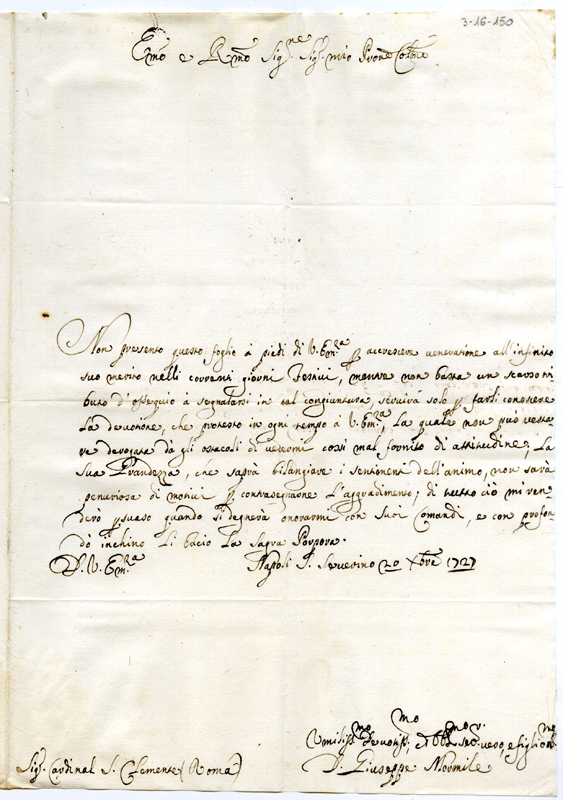 3-16-150
Emo e Rmo Sigre Sigr mio Prone Colmo
Non presento questo foglio à piedi di V. Emza p accrescere veneratione all'infinito
suo merito nelli correnti giorni Festivi, mentre non basta un scarso tri
buto d'ossequio à segnalarsi in tal congiuntura, servirà solo p farli conoscere
la devotione, che protesto in ogni tempo à V. Emza, La quale non può resta
re derogata dà gli ostacoli di vedermi così mal fornito di attitudine; La
sua Grandezza, che saprà bilangiare i sentimenti dell'animo, non sarà
penuriosa di motivi p contrasegnarne l'aggradimento; di tutto ciò mi ren
derò psuaso quando si degnerà onorarmi con suoi Comandi, e con profon
do inchino Li bacio La sagra Porpora.
D. V. Emza Napoli S. Severino 20 Xbre 1727
Umilissmo Devotissmo et Obbl. servre vero, e figlio
D. Giuseppe Mormile
Sigr Cardinal S. Clemente (Roma)